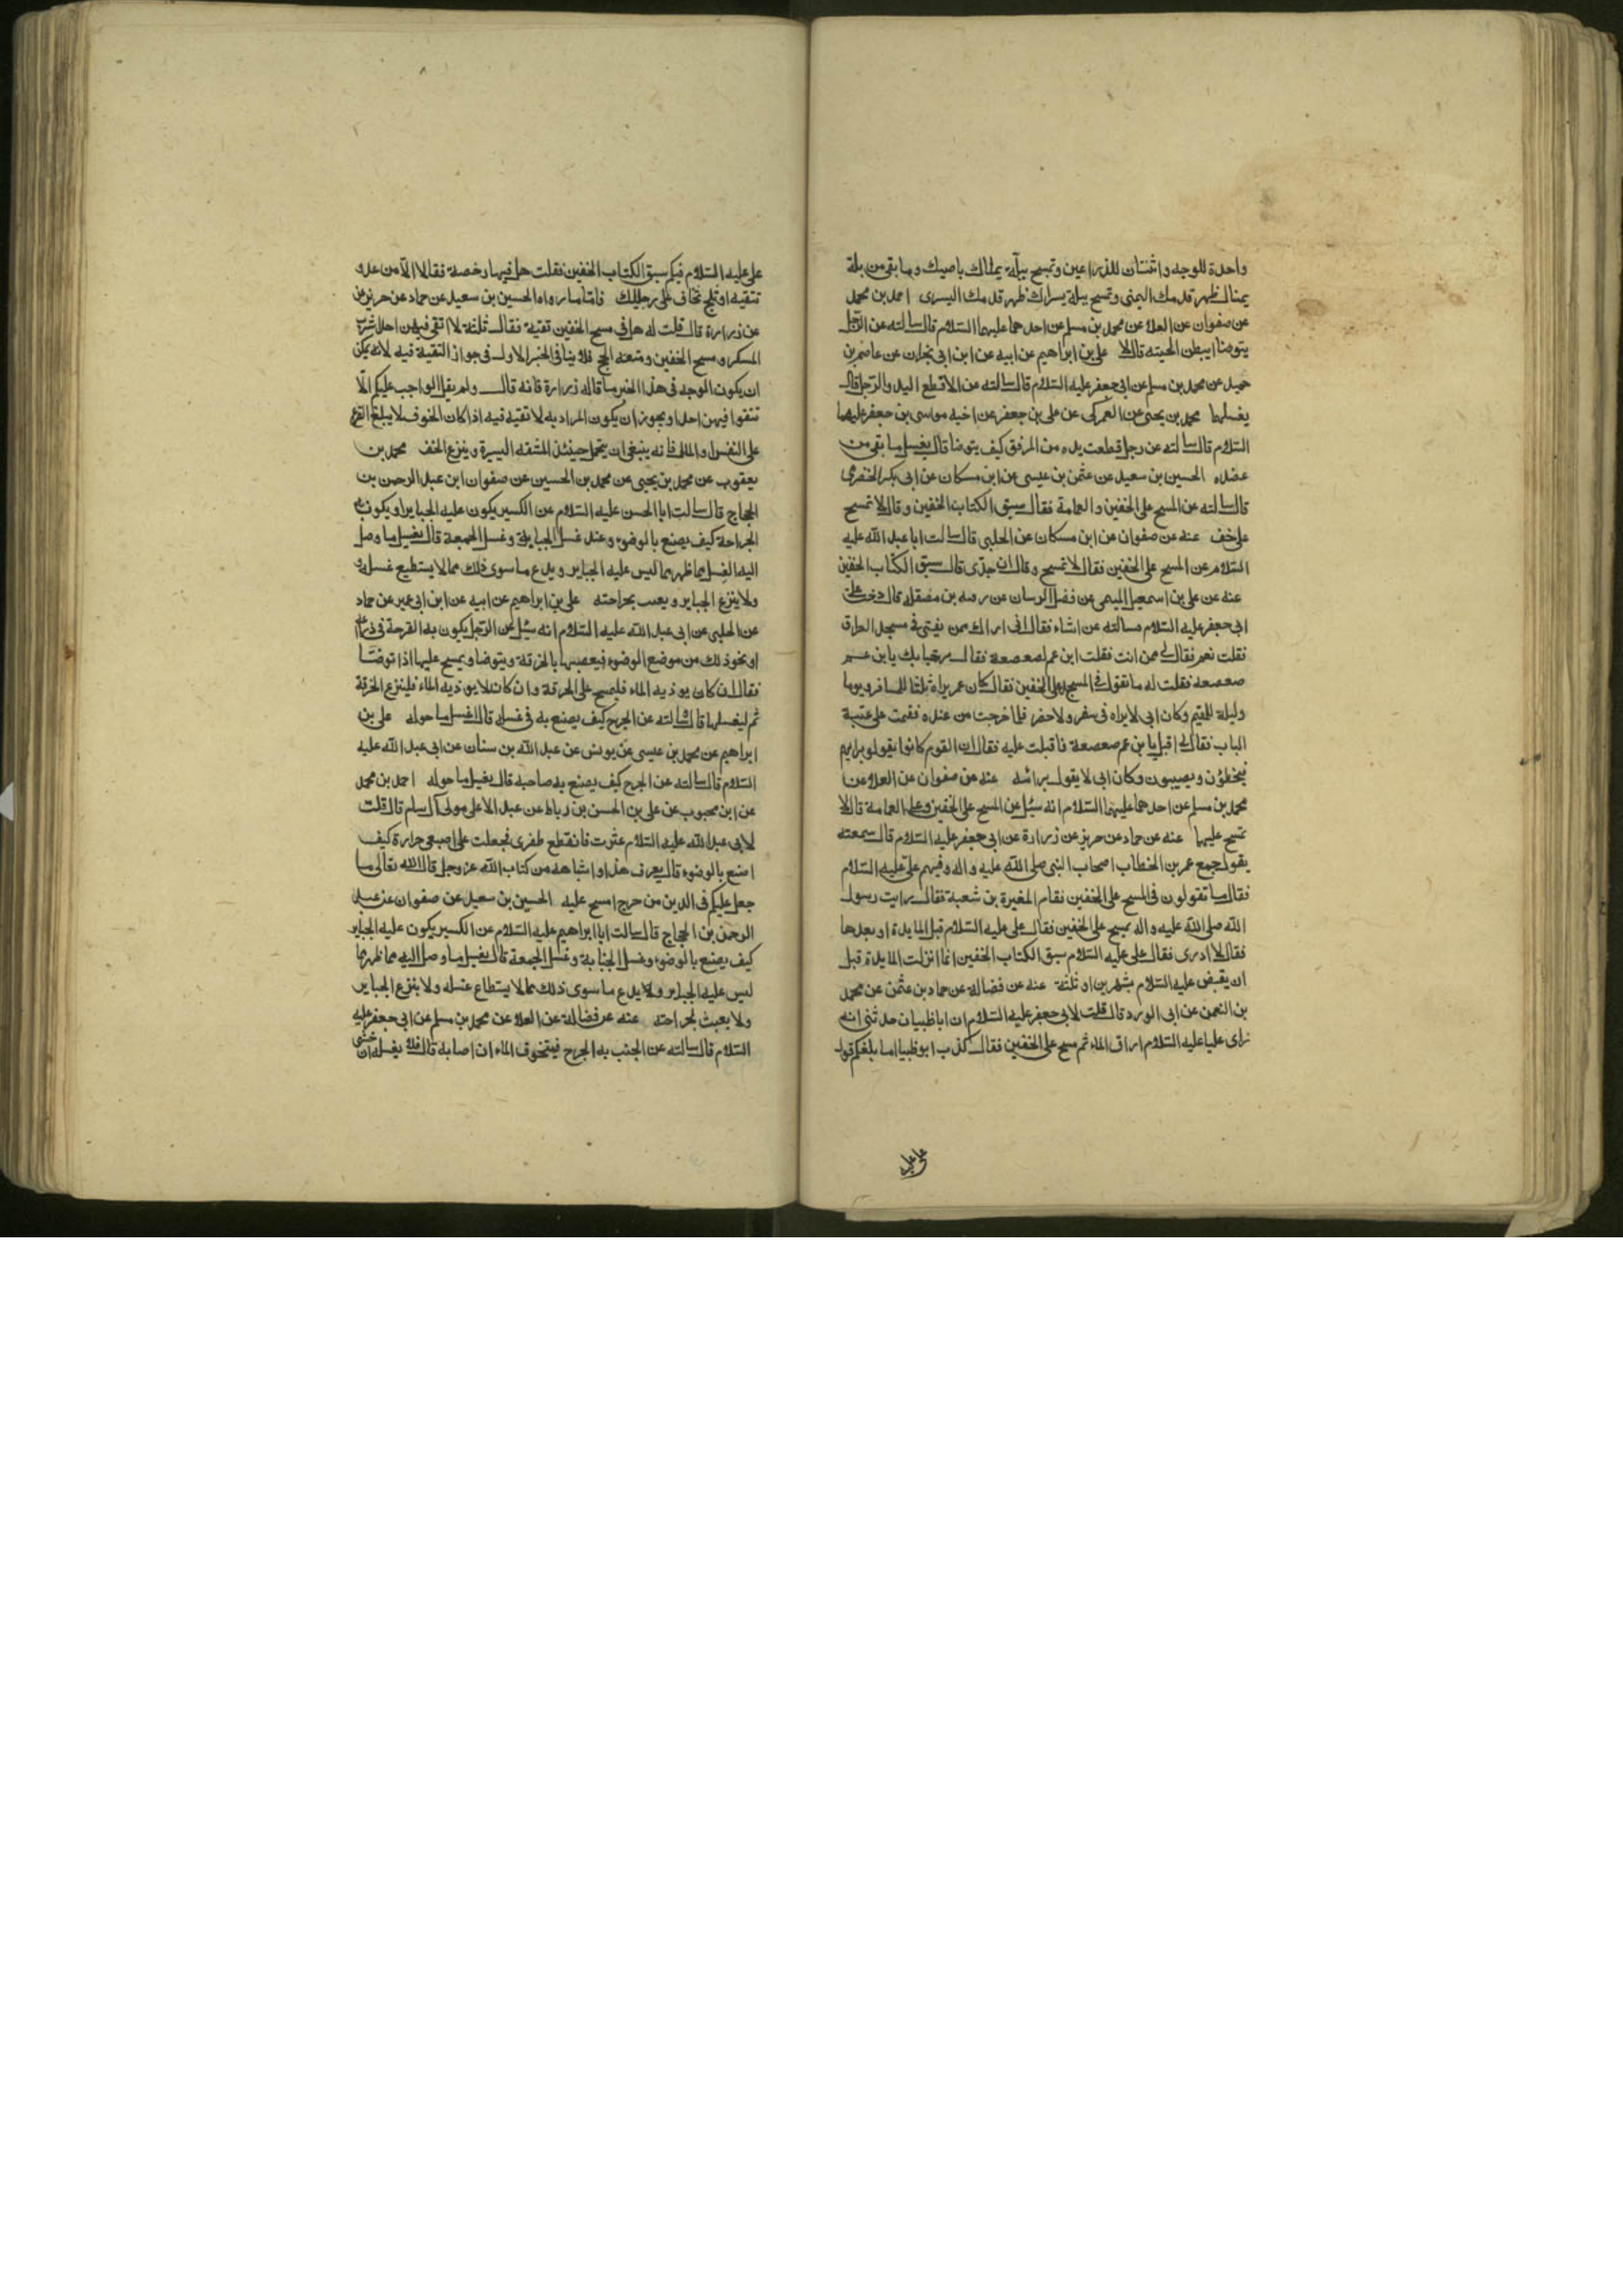 واحدة للوجه واثنتان للذراعين وتمسح ببلة يمناك ناصيتك وما بقي من بلة
يمناك ظهر قدمك اليمنى وتمسح ببلة يسراك ظهر قدمك اليسرى احمد بن محمد
عن صفوان عن العلا عن محمد بن مسلم عن احدهما عليهما السلام قال سالته عن الرجل
يتوضا ايبطن لحيته قال لا علي بن ابراهيم عن ابيه عن ابن ابي نجران عن عاصم بن
حميد عن محمد بن مسلم عن ابي جعفر عليه السلام قال سالته عن الاقطع اليد والرجل قال
يغسلهما محمد بن يحيى عن العمركى عن علي بن جعفر عن اخيه موسى بن جعفر عليهما
السلام قال سالته عن رجل قطعت يده من المرفق كيف يتوضا قال يغسل ما بقي من
عضده الحسين بن سعيد عن عثمن بن عيسى عن ابن مسكان عن ابى بكر الحضرمى
قال سالته عن المسح على الخفين والعمامة فقال سبق الكتاب الخفين وقال لا تمسح
على خف عنه عن صفوان عن ابن مسكان عن الحلبى قال سالت ابا عبد الله عليه
السلام عن المسح على الخفين فقال لا تمسح وقال ان جدّى قال سبق الكتاب الخفين
عنه عن علي بن اسمعيل الميثمى عن فضيل الرسان عن رقبه بن مصقله قال دخلت على
ابى جعفر عليه السلام فسالته عن اشياء فقال انى اراك ممن يفتى فى مسجد العراق
فقلت نعم فقال لي ممن انت فقلت ابن عم لصعصعة فقال مرحبا بك يا ابن عم
صعصعه فقلت له ما تقول فى المسح على الخفين فقال كان عمر يراه ثلثا للمسافر ويوما
وليلة للمقيم وكان ابى لا يراه فى سفر ولا حضر فلما خرجت من عنده فقمت على عتبة
الباب فقال لي اقبل يا ابن عم صعصعة فاقبلت عليه فقال ان القوم كانوا يقولون برايهم
فيخطؤن ويصيبون وكان ابى لا يقول برائه عنه عن صفوان عن العلا عن
محمد بن مسلم عن احدهما عليهما السلام انه سئل عن المسح على الخفين وعلى العمامة قال لا
تمسح عليهما عنه عن حماد عن حريز عن زرارة عن ابى جعفر عليه السلام قال سمعته
يقول جمع عمر بن الخطاب اصحاب النبى صلى الله عليه واله وفيهم علىّ عليه السلام
فقال ما تقولون فى المسح على الخفين فقام المغيرة بن شعبة فقال رايت رسول
الله صلى الله عليه واله يمسح على الخفين فقال على عليه السلام قبل المايدة او بعدها
فقال لا ادرى فقال على عليه السلام سبق الكتاب الخفين انما انزلت المايدة قبل
ان يقبض عليه السلام بشهرين او ثلثة عنه عن فضالة عن حماد بن عثمن عن محمد
بن النعمن عن ابى الورد قال قلت لابى جعفر عليه السلام ان ابا ظبيان حدثنى انه
راى عليا عليه السلام اراق الماء ثم مسح على الخفين فقال كذب ابو ظبيا اما بلغكم قول
على عليه
على عليه السلام فيكم سبق الكتاب الخفين فقلت هل فيهما رخصة فقال لا الّا من عدو
تتقيه او ثلج تخاف على رجليك فاما ما رواه الحسين بن سعيد عن حماد عن حريز
عن زرارة قال قلت له هل فى مسح الخفين تقية فقال ثلثة لا اتقى فيهن احدا شرب
المسكر ومسح الخفين ومتعه الحج فلا ينافى الخبر الاول فى جواز التقية فيه لانه يمكن
ان يكون الوجه فى هذا الخبر ما قاله زرارة فانه قال ولم يقل الواجب عليكم الّا
تتقوا فيهن احدا ويجوز ان يكون المراد به لا تقيه فيه اذا كان الخوف لا يبلغ الفزع
على النفس او المال فانه ينبغى ان يتحمل حينئذ المشقه اليسيرة وينزع الخف محمد بن
يعقوب عن محمد بن يحيى عن محمد بن الحسين عن صفوان ابن عبد الرحمن بن
الحجاج قال سالت ابا الحسن عليه السلام عن الكسير يكون عليه الجباير او يكون به
الجراحة كيف يصنع بالوضوء وعند غسل الجنابة وغسل الجمعة قال يغسل ما وصل
اليه الغسل مما ظهر مما ليس عليه الجباير ويدع ما سوى ذلك مما لا يستطيع غسله
ولا ينزع الجباير ويعبث بجراحته على بن ابراهيم عن ابيه عن ابن ابى عمير عن حماد
عن الحلبى عن ابى عبد الله عليه السلام انه سئل عن الرجل يكون به القرحة فى ذراعه
او نحو ذلك من موضع الوضوء فيعصبها بالخرقة ويتوضا ويمسح عليها اذا توضّا
فقال ان كان يوذيه الماء فليمسح على الخرقة وان كان لا يوذيه الماء فلينزع الخرقة
ثم ليغسلها قال وسالته عن الجرح كيف يصنع به فى غسله قال اغسل ما حوله على بن
ابراهيم عن محمد بن عيسى عن يونس عن عبد الله بن سنان عن ابى عبد الله عليه
السلام قال سالته عن الجرح كيف يصنع به صاحبه قال يغسل ما حوله احمد بن محمد
عن ابن محبوب عن على بن الحسن بن رباط عن عبد الاعلى مولى آل سام قال قلت
لابى عبد الله عليه السلام عثرت فانقطع ظفرى فجعلت على اصبعى مرارة كيف
اصنع بالوضوء قال يعرف هذا واشباهه من كتاب الله عز وجل قال الله تعالى ما
جعل عليكم فى الدين من حرج امسح عليه الحسين بن سعيد عن صفوان عن عبد
الرحمن بن الحجاج قال سالت ابا ابراهيم عليه السلام عن الكسير يكون عليه الجباير
كيف يصنع بالوضوء وغسل الجنابة وغسل الجمعة قال يغسل ما وصل اليه مما ظهر مما
ليس عليه الجباير ويدع ما سوى ذلك مما لا يستطاع غسله ولا ينزع الجباير
ولا يعبث بجراحته عنه عن فضالة عن العلا عن محمد بن مسلم عن ابى جعفر عليه
السلام قال سالته عن الجنب به الجرح فيتخوف الماء ان اصابه قال فلا يغسله ان خشى